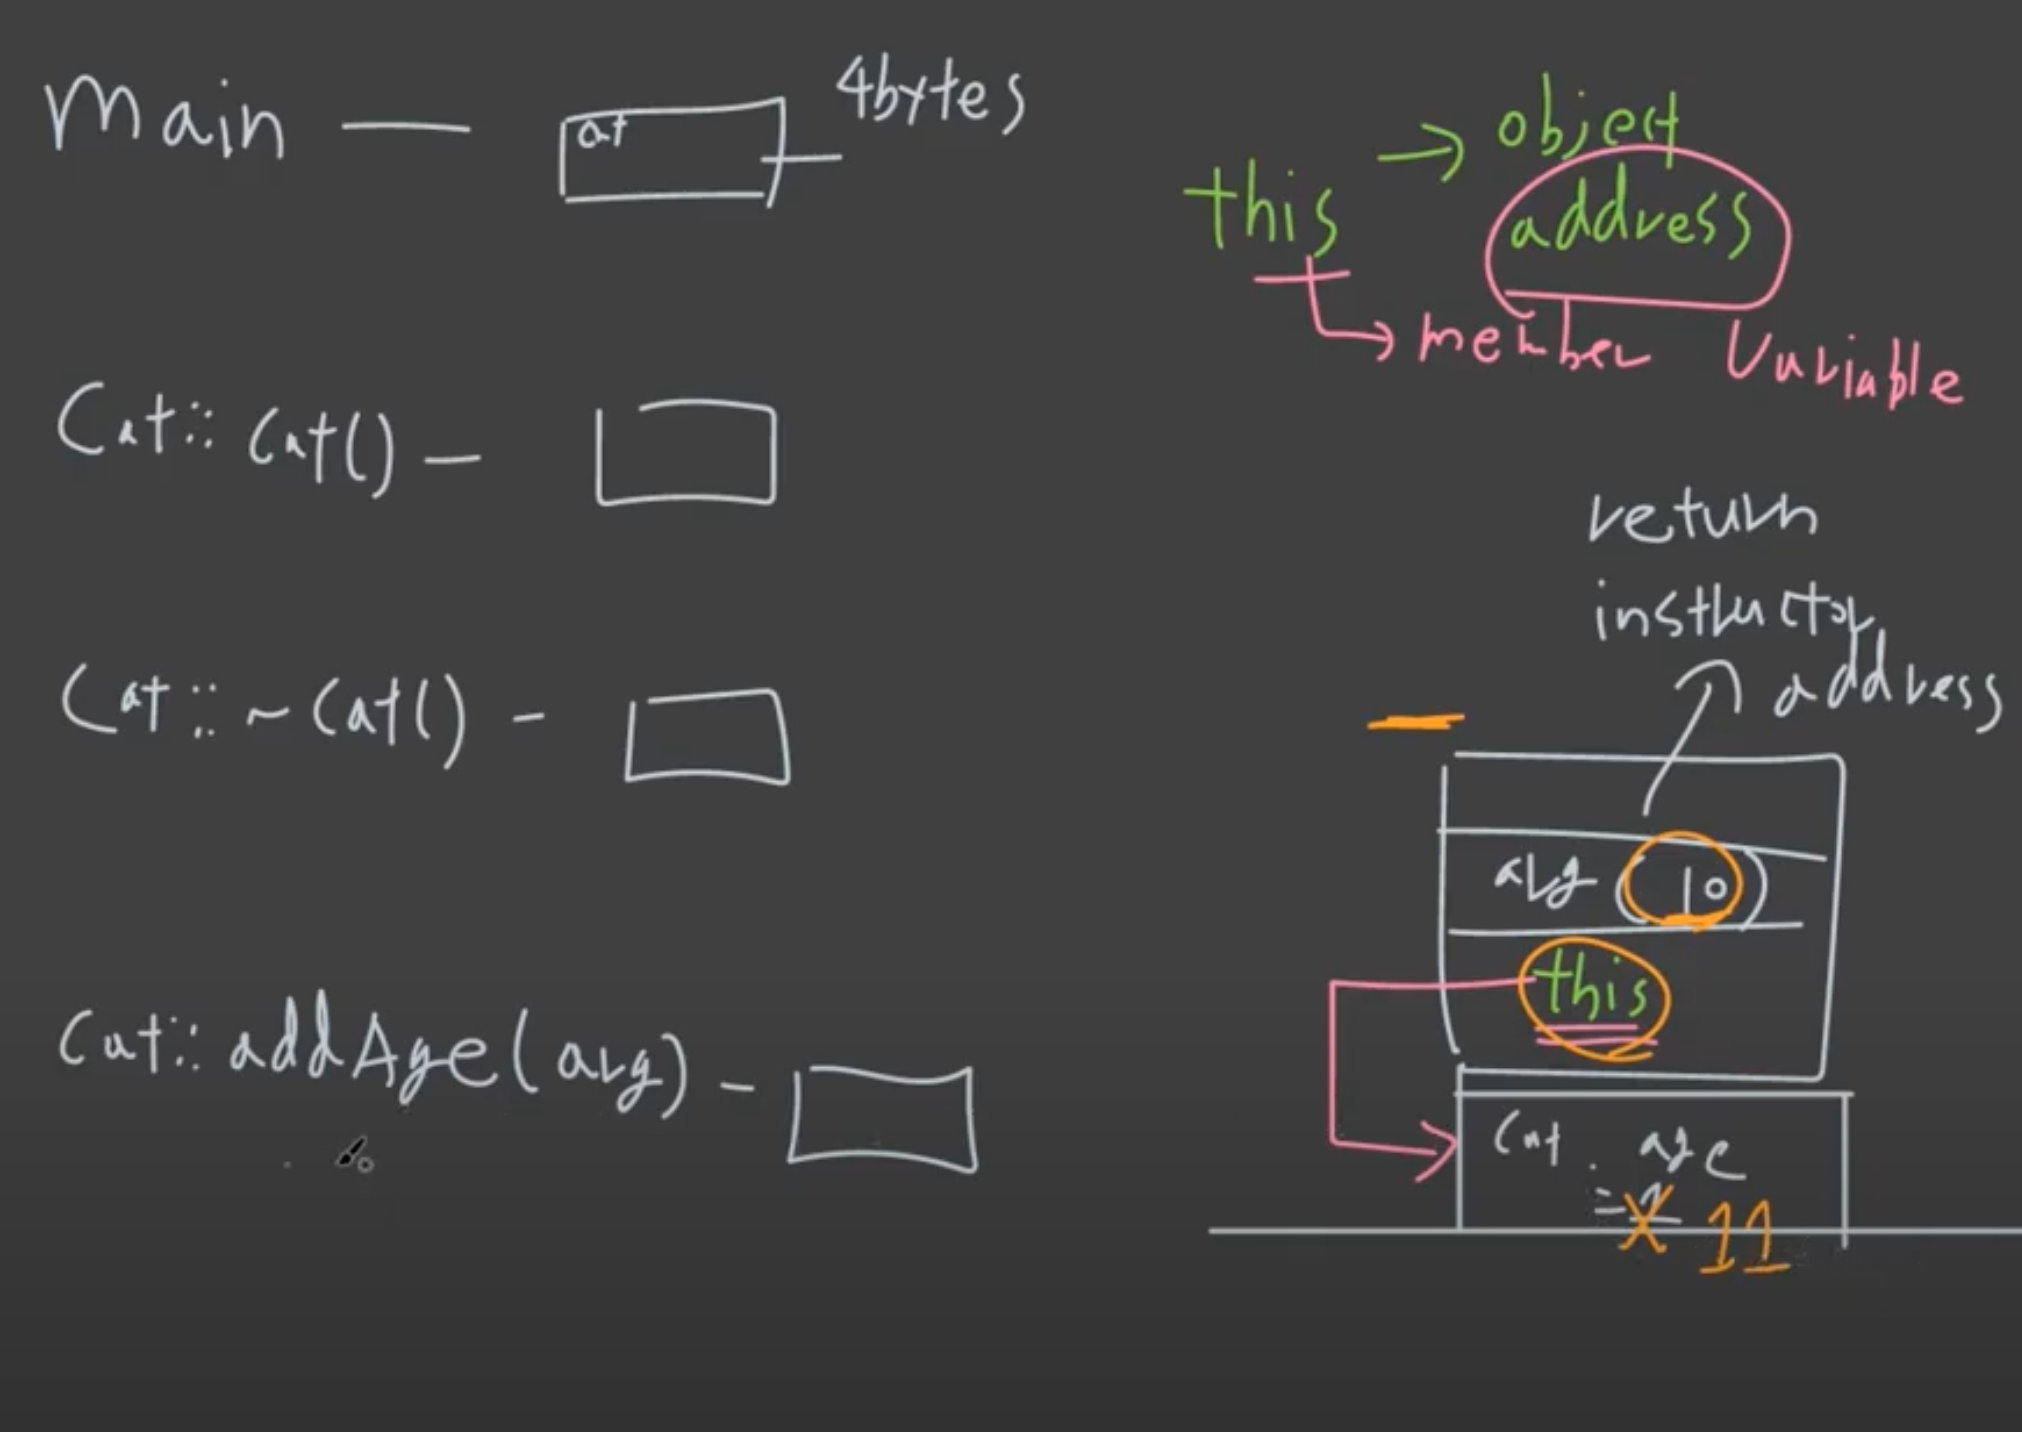 Main — cat 4bytes
Cat:: Cat() —
Cat:: ~Cat() -
Cat:: addAge(arg) -
this → object
address
member Variable
return
instructor
address
arg (10)
this
Cat. age
= 1 11